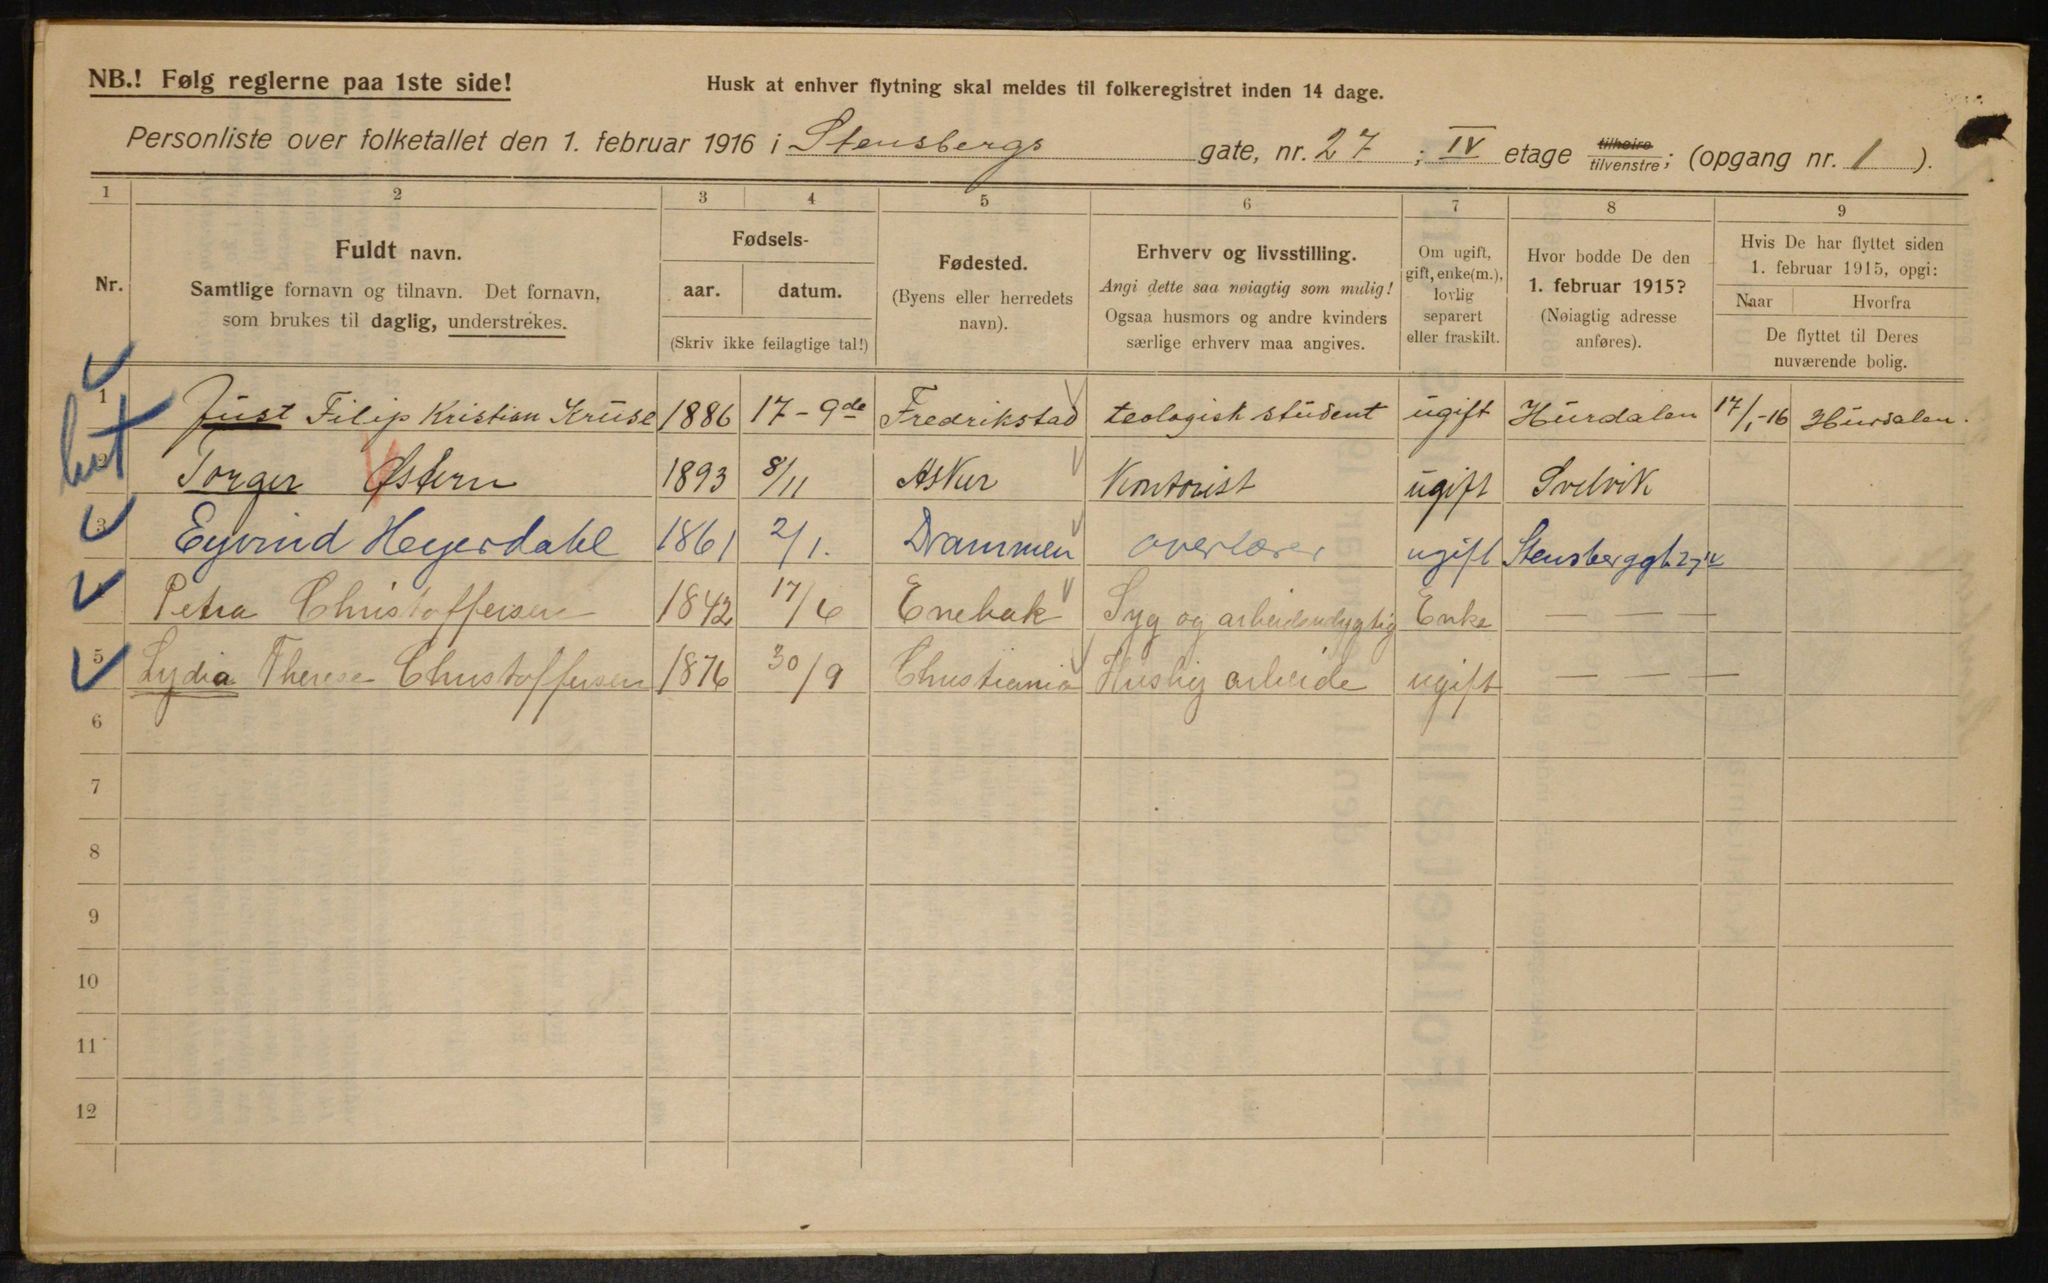 NB.! Følg reglerne paa 1ste side!
Husk at enhver flytning skal meldes til folkeregistret inden 14 dage.
Personliste over folketallet den 1. februar 1916 i Stensbergs gate, nr. 27 ; IV etage tilhøire tilvenstre; (opgang nr. 1 ).
1 2 3 4 5 6 7 8 9
Nr.
Fuldt navn.
Samtlige fornavn og tilnavn. Det fornavn,
som brukes til daglig, understrekes.
Fødsels-
aar. datum.
(Skriv ikke feilagtige tal!)
Fødested.
(Byens eller herredets
navn).
Erhverv og livsstilling.
Angi dette saa nøiagtig som mulig!
Ogsaa husmors og andre kvinders
særlige erhverv maa angives.
Om ugift,
gift, enke(m.),
lovlig
separert
eller fraskilt.
Hvor bodde De den
1. februar 1915?
(Nøiagtig adresse
anføres).
Hvis De har flyttet siden
1. februar 1915, opgi:
Naar Hvorfra
De flyttet til Deres
nuværende bolig.
1 Just Filip Kristian Kruse 1886 17-9de Fredrikstad teologisk student ugift Hurdalen 17/1-16 Hurdalen.
2 Torger Østern 1893 8/11 Asker Kontorist ugift Svelvik
3 Eyvind Heyerdahl 1861 2/1. Drammen overlærer ugift Stensberggt. 27 IV
4 Petra Christoffersen 1842 17/6 Enebak Syg og arbeidsudygtig Enke — — —
5 Lydia Therese Christoffersen 1876 30/9 Christiania Huslig arbeide ugift — — —
6
7
8
9
10
11
12